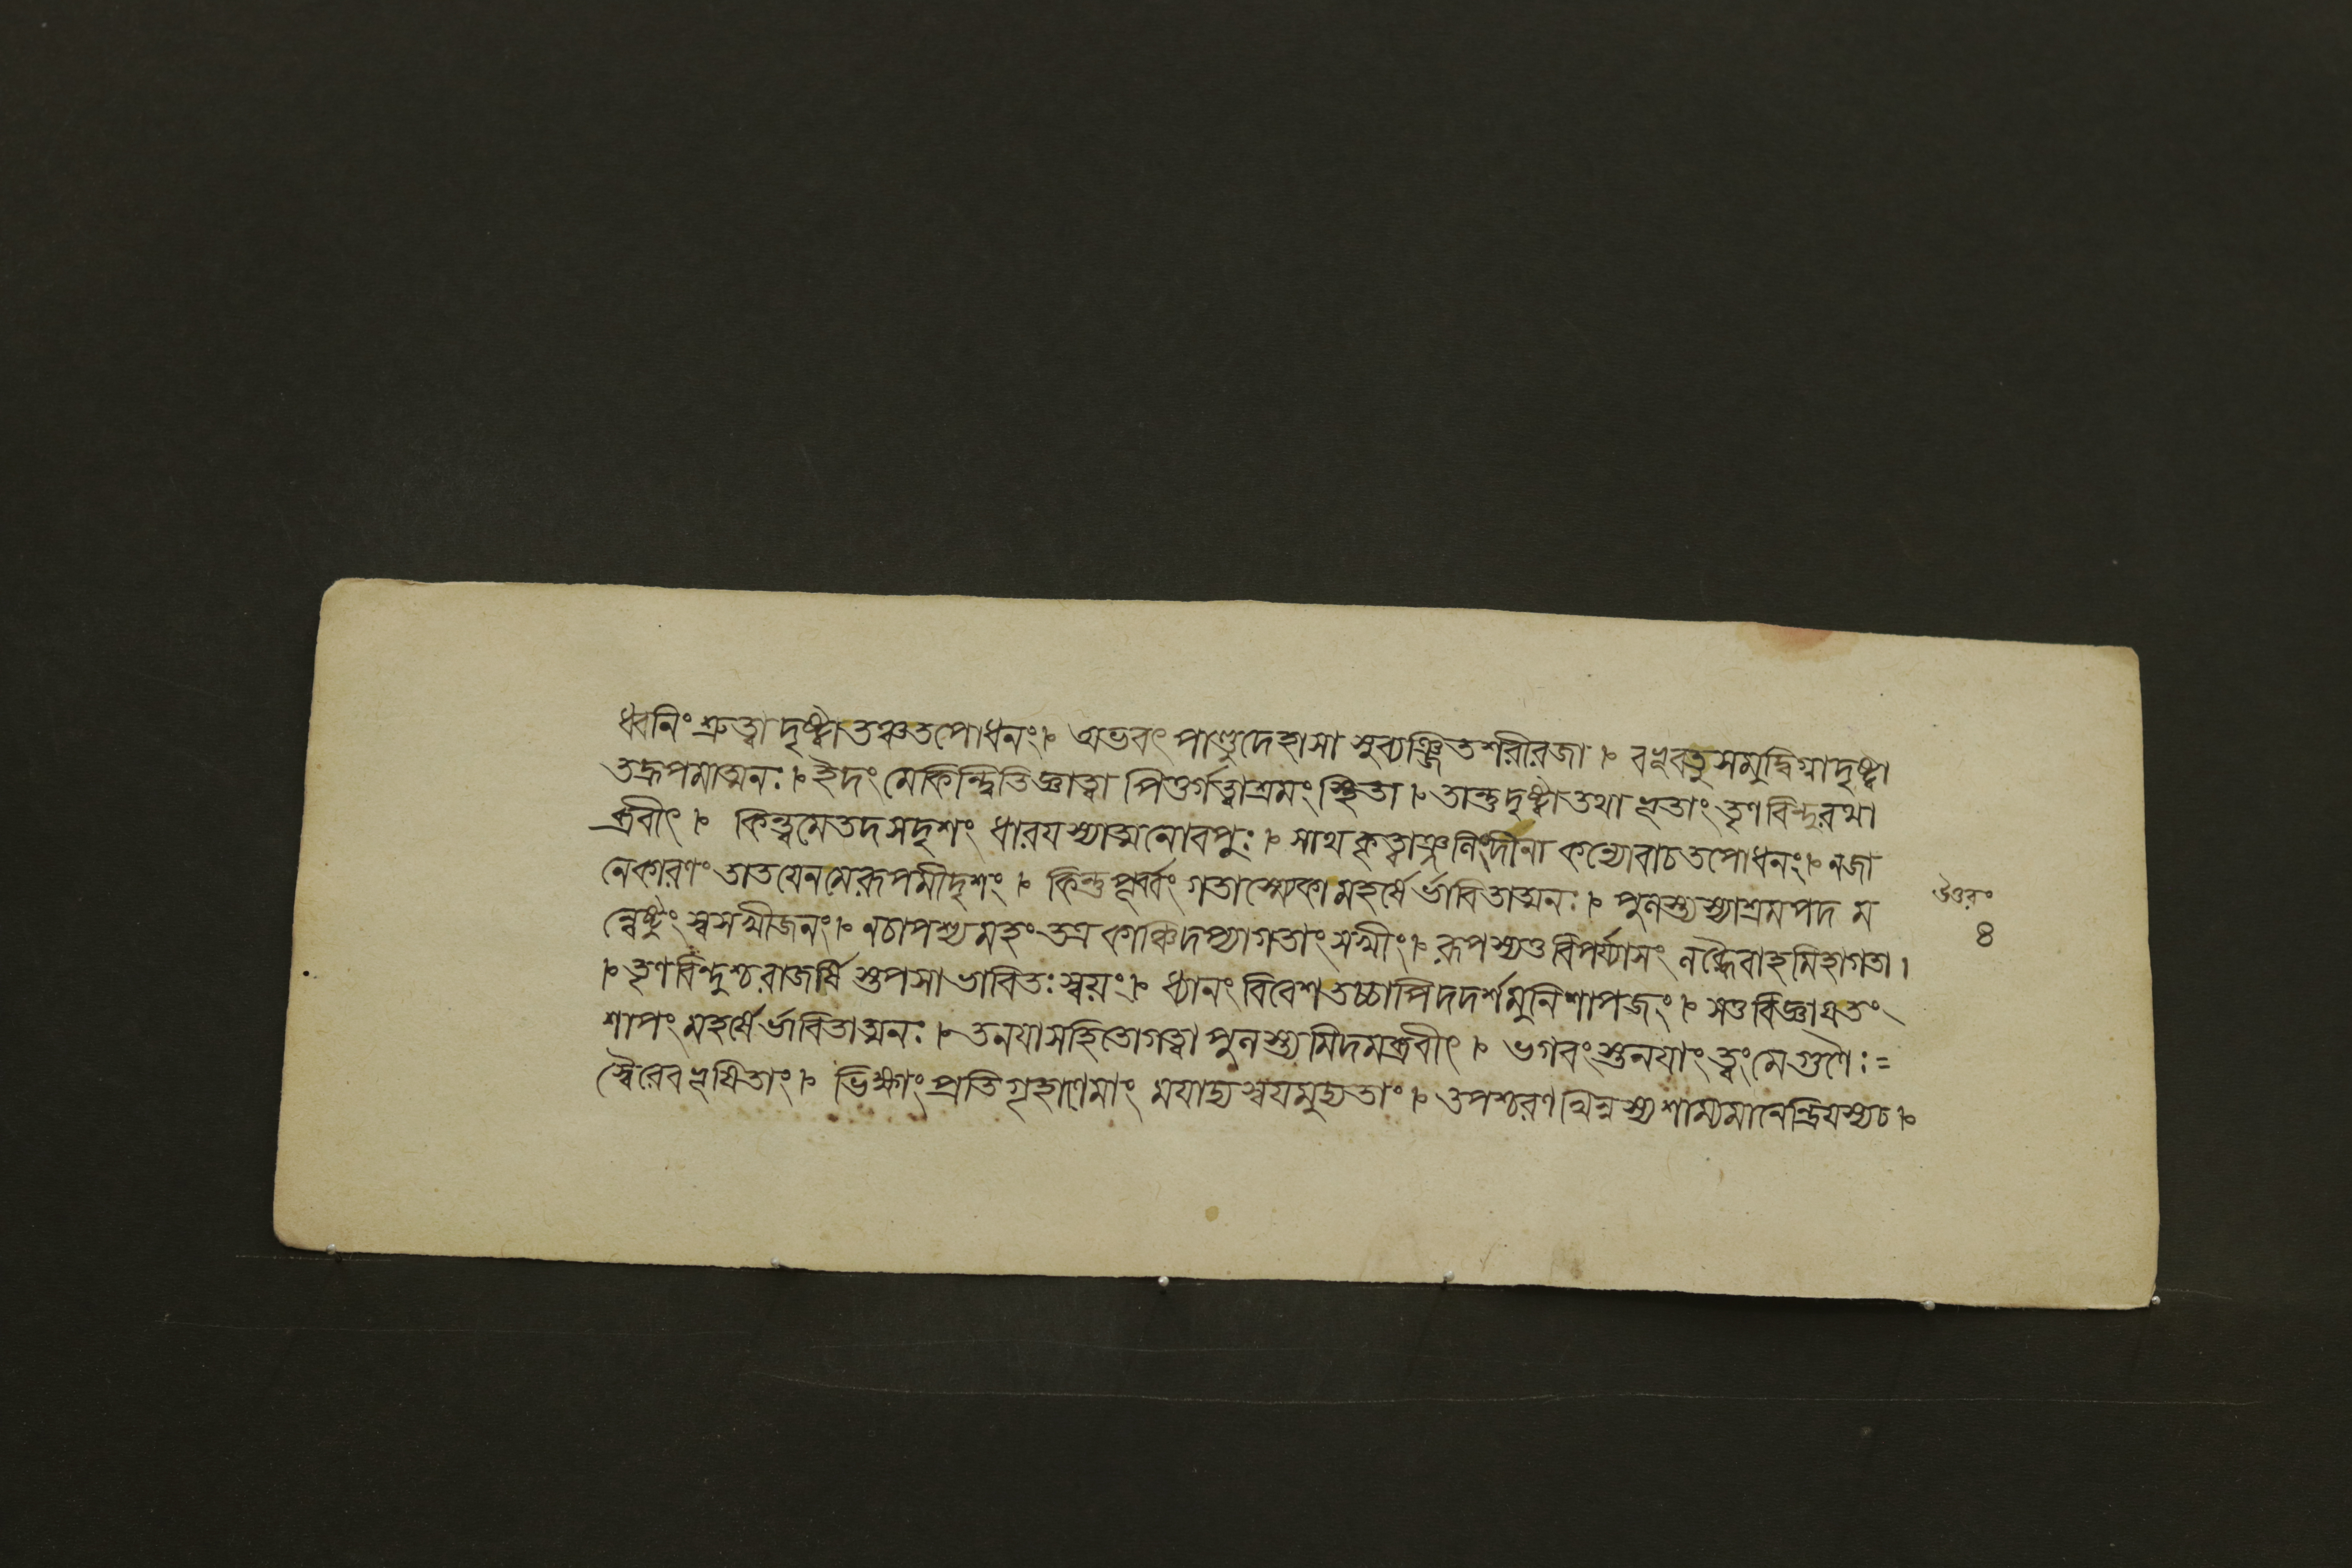 ধ্বনিং শ্রুত্বা দৃষ্ট্বাতঞ্চতপোধনং৷৹ অভবৎ পাণ্ডুদেহাসা সুব্যঞ্জিতশরীরজা ৷৹ বভূবতুসমুদ্বিগ্নাদৃষ্ট্বা
তদ্রূপমাত্মনঃ ৷৹ ইদং মেকিন্ত্বিতিজ্ঞাত্বা পিতুর্গত্বাশ্রমং স্থিতা ৷৹ তান্তু দৃষ্ট্বাতথা ভূতাং তৃণবিন্দুরথা
ব্রবীৎ ৷৹ কিন্ত্বমেতদসদৃশং ধারযস্যাত্মনোবপুঃ ৷৹ সাথ কৃত্বাঞ্জলিংদীনা কন্যোবাচতপোধনং ৷৹ নজা
নেকারণং তাতযেনমেরূপমীদৃশং ৷৹ কিন্তু পূর্ব্বং গতাস্ম্যেকা মহর্ষের্ভাবিতাত্মনঃ ৷৹ পুলস্ত্যস্যাশ্রমপদ ম
ন্বেষ্টুং স্বসখীজনং ৷৹ নচাপশ্যমহং তত্র কাঞ্চিদপ্যাগতাং সখীং ৷৹ রূপস্যতু বিপর্য্যাসং লব্ধৈবাহমিহাগতা ৷
৷৹ তৃণবিন্দুশ্চরাজর্ষি স্তপসাভাবিতঃ স্বয়ং ৷৹ ধ্যানং বিবেশতচ্চাপিদদর্শমুনিশাপজং ৷৹ সতুবিজ্ঞাযতং
শাপং মহর্ষের্ভাবিতাত্মনঃ ৷৹ তনযাসহিতোগত্বা পুলস্ত্যমিদমব্রবীৎ ৷৹ ভগবংস্তনযাং ত্বংমেগুণৈঃ=
স্বৈরেবভূষিতাং ৷৹ ভিক্ষাং প্রতিগৃহাণেমাং মযাদ্য স্বযমুদ্যতাং ৷৹ তপশ্চরণখিন্নস্য শাম্যমানেন্দ্রিযস্যচ ৷৹
উত্তরং
৪